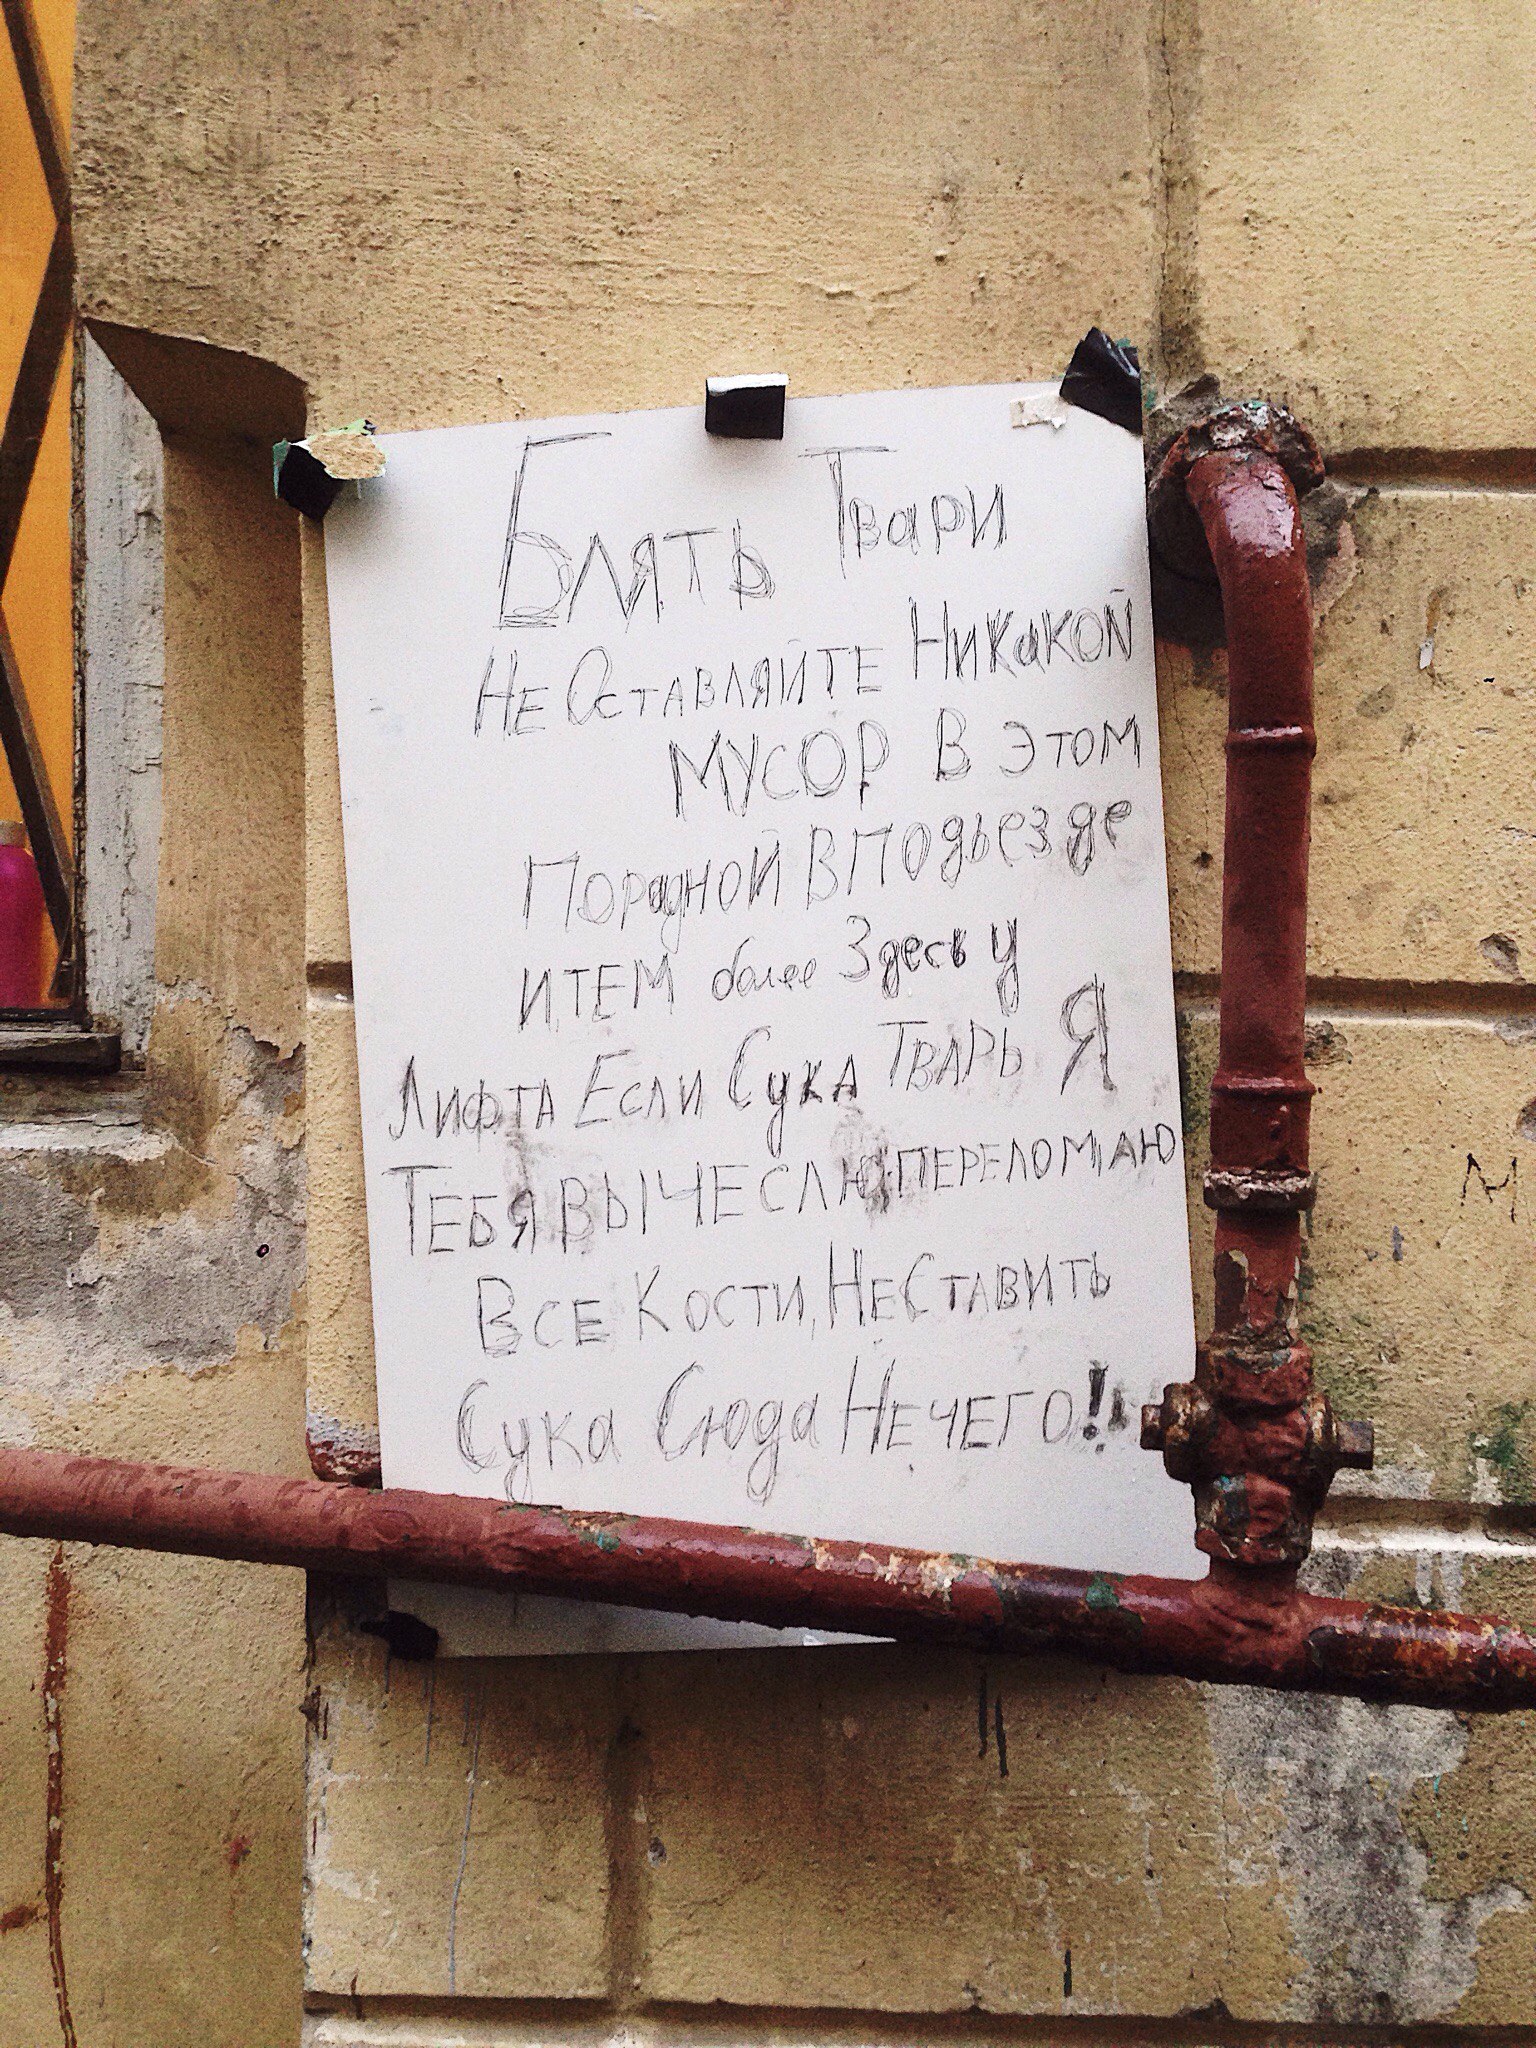 Блять Твари
Не Оставляйте Никакой
мусор в этом
Порадной в подьезде
и, тем более Здесь у
Лифта Если Сука Тварь Я
Тебя вычеслю, переломаю
Все Кости, Не Ставить
Сука Сюда Нечего!!